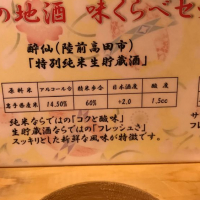 の地酒 味くらべセ
酔仙（陸前高田市）
「特別純米生貯蔵酒」
原料米 アルコール分 精米歩合 日本酒度 酸度
岩手県産米 14.50% 60% +2.0 1.5cc
純米ならではの「コクと酸味」
生貯蔵酒ならではの「フレッシュさ」
スッキリとした新鮮な風味が特徴です。
サ